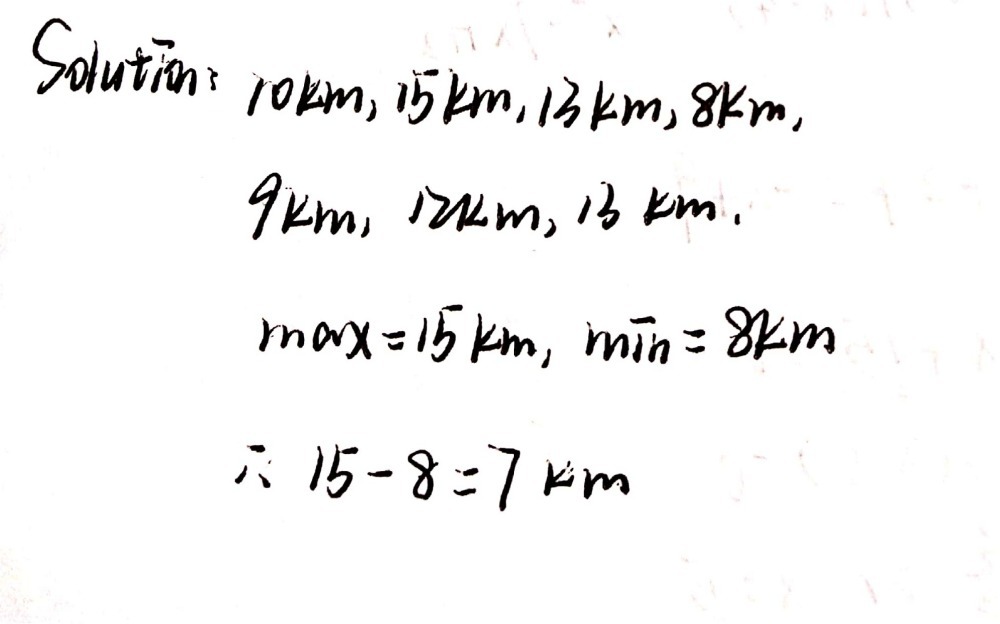 Solution: 10km, 15km, 13km, 8km,
9km, 12km, 13 km.
max=15km, min=8km
∴ 15-8=7 km